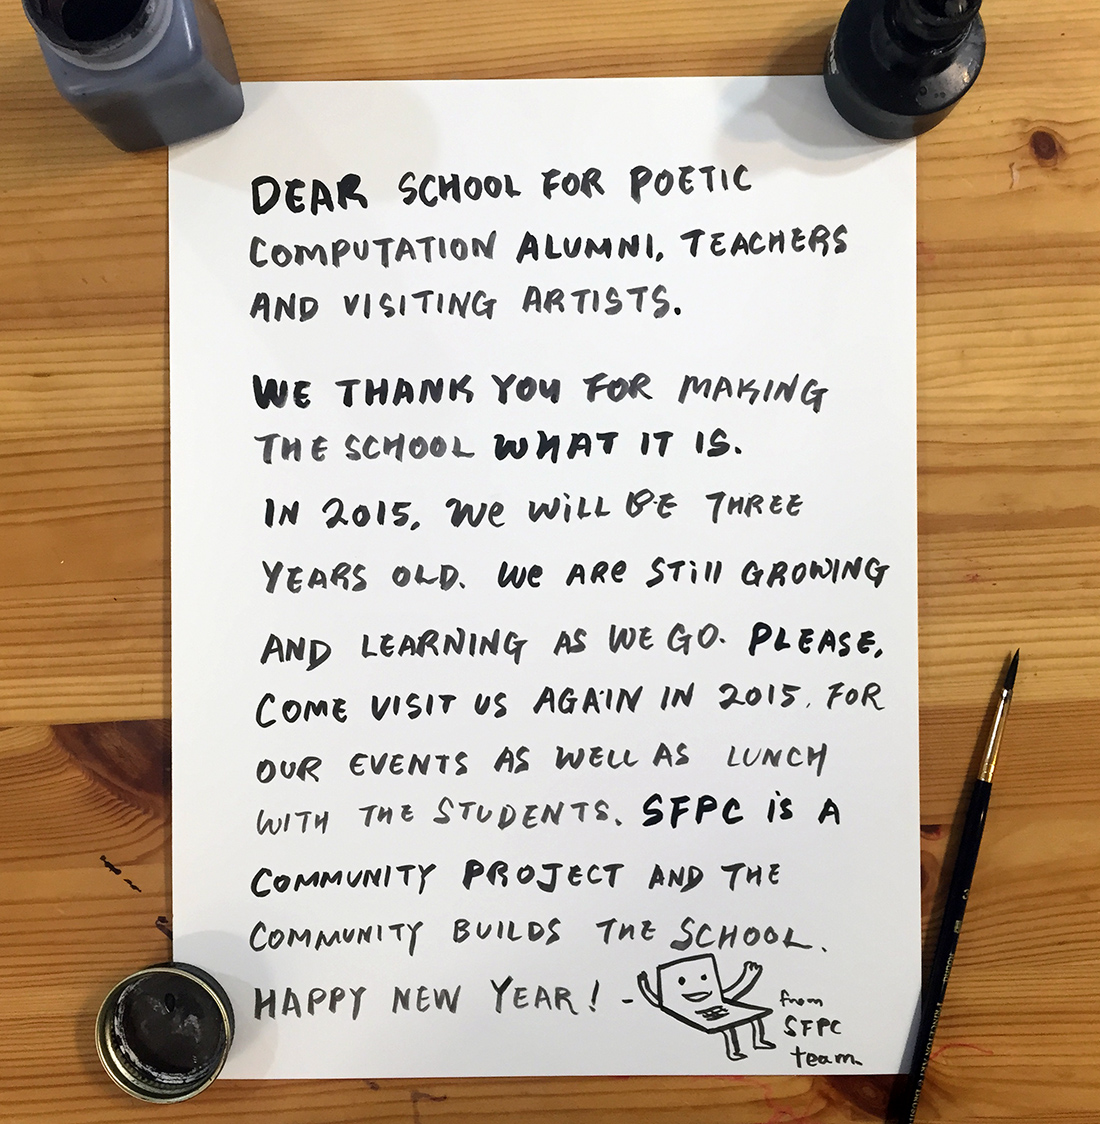 DEAR SCHOOL FOR POETIC
COMPUTATION ALUMNI, TEACHERS
AND VISITING ARTISTS.
WE THANK YOU FOR MAKING
THE SCHOOL WHAT IT IS.
IN 2015, We WiLL BE THREE
YEARS OLD. We ARe STill GROWING
AND LEARNING AS WE GO. PLEASE,
COME VISIT US AGAIN IN 2015. FOR
OUR EVENTS AS WELL AS LUNCH
WITH THE STUDENTS. SFPC iS A
COMMUNITY PROJECT AND THE
COMMUNITY BUILDS THE SCHOOL.
HAPPY NEW YEAR! -
from
SFPC
team.